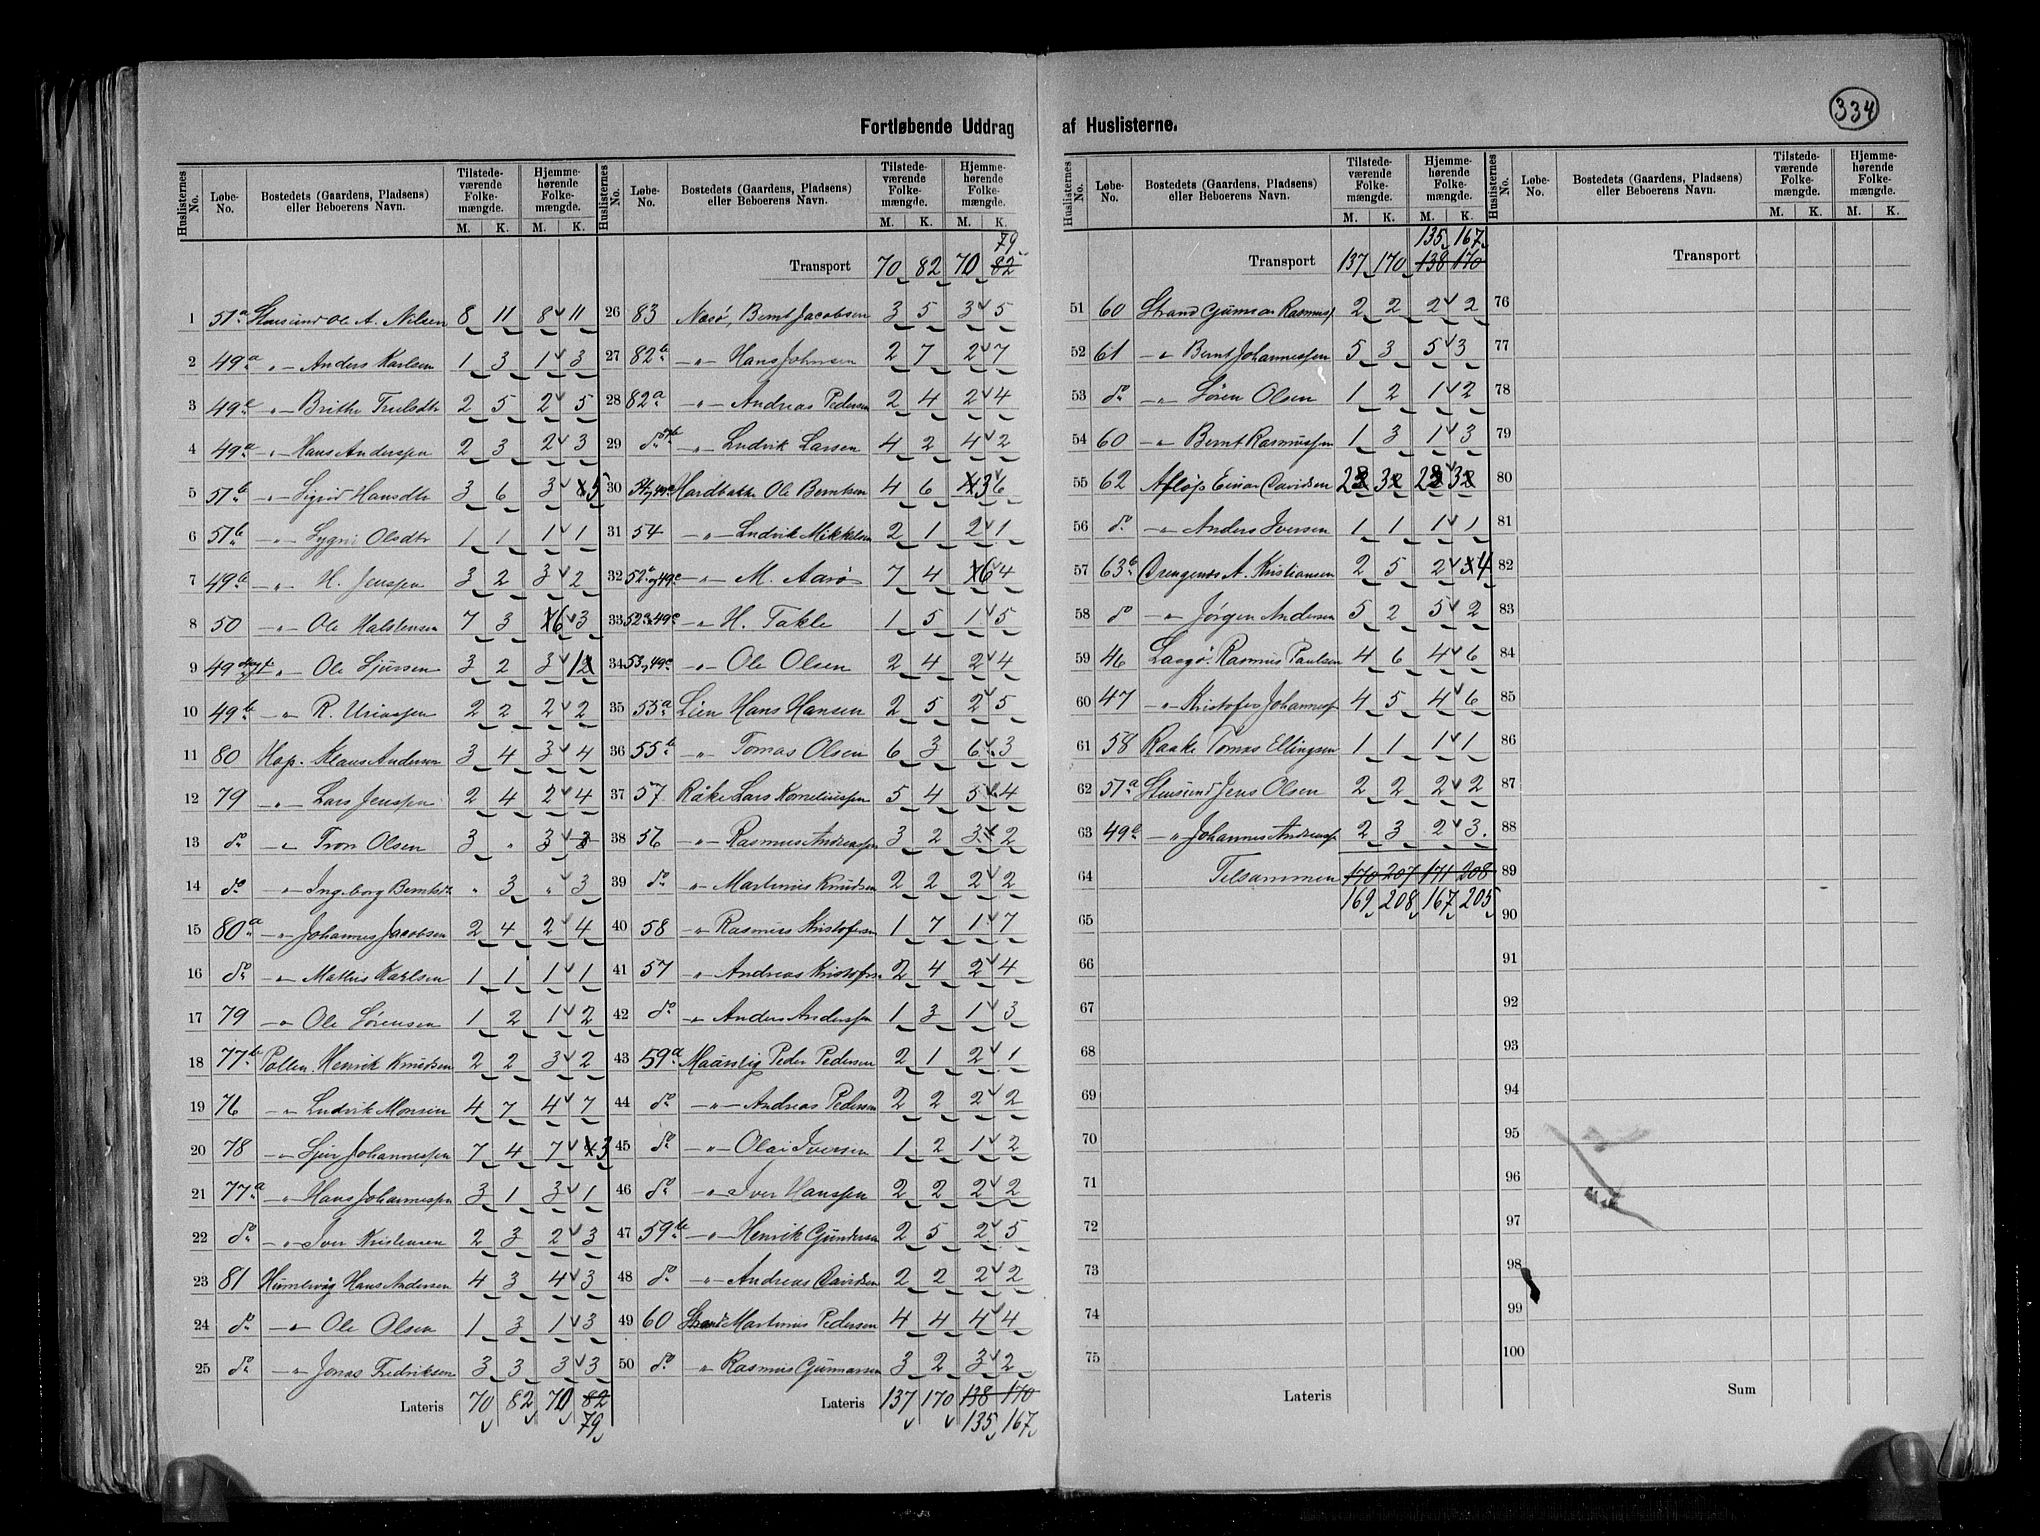 334
Fortløbende Uddrag af Huslisterne.
Huslisternes No. Løbe-No. Bostedets (Gaardens, Pladsens) eller Beboerens Navn. Tilstede-værende Folke-mængde. M. K. Hjemme-hørende Folke-mængde. M. K.
1 51a Ole A. Nilsen 8 11 8 11
2 49a " Anders Karlsen 1 3 1 3
3 49e " Brithe Trulsdtr 2 5 2 5
4 49a " Hans Anderssen 2 3 2 3
5 51b " Sigrid Hansdtr 3 6 3 5
6 51b " Olsdtr 1 1 1 1
7 49b " H. Jenssen 3 2 3 2
8 50 " Ole Halstensen 7 3 6 3
9 49 " Ole Sjursen 3 2 3 1
10 49b " R. Uriassen 2 2 2 2
11 80 Hop. Klaus Andersen 3 4 3 4
12 79 " Lars Jenssen 2 4 2 4
13 do " Tron Olsen 3 "
14 do " Ingeborg Berntsdtr " 3 " 3
15 80a " Johannes Jacobsen 2 4 2 4
16 do " Mathis Karlsen 1 1 1 1
17 79 " Ole Sørensen 1 2 1 2
18 77b Pollen. Henrik Knudsen 2 2 3 2
19 76 " Ludvik Monsen 4 7 4 7
20 78 " Sjur Johannessen 7 4 7 3
21 77a " Hans Johannessen 3 1 3 1
22 do " Iver Kristensen 2 3 2 3
23 81 Humlevåg Hans Andersen 4 3 4 3
24 do " Ole Olsen 1 3 1 3
25 do " Jonas Fredriksen 3 3 3 3
Lateris 70 82 70 82
79
Huslisternes No. Løbe-No. Bostedets (Gaardens, Pladsens) eller Beboerens Navn. Tilstede-værende Folke-mængde. M. K. Hjemme-hørende Folke-mængde. M. K.
79
Transport 70 82 70 82
26 83 Næsø, Bernt Jacobsen 3 5 3 5
27 82b " Hans Johnsen 2 7 2 7
28 82a " Andreas Pedersen 2 4 2 4
29 do " Ludvik Larsen 4 2 4 2
30 Hardbakke Ole Berntsen 4 6 3 6
31 54 " Ludvik Mikkelsen 2 1 2 1
32 52b og 49c " M. Aarø 7 4 6 4
33 52a 49c " H. Takle 1 5 1 5
34 53 og 49c " Ole Olsen 2 4 2 4
35 55a Lien Hans Hansen 2 5 2 5
36 55b " Tomas Olsen 6 3 6 3
37 57 Råke Lars Korneliussen 5 4 5 4
38 56 " Rasmus Andreassen 3 2 3 2
39 do " Martinus Knudsen 2 2 2 2
40 58 " Rasmus Kristofersen 1 7 1 7
41 57 " Andreas Kristofersen 2 4 2 4
42 do " Anders Anderssen 1 3 1 3
43 59a Peder Pedersen 2 1 2 1
44 do " Andreas Pedersen 2 2 2 2
45 do " Olai Iversen 1 2 1 2
46 do " Iver Hanssen 2 2 2 2
47 59b " Henrik Gundersen 2 5 2 5
48 do " Andreas Davidsen 2 2 2 2
49 60 Strand Martinus Pedersen 4 4 4 4
50 do " Rasmus Gunnarsen 3 2 3 2
Lateris 137 170 138 170
135 167
Huslisternes No. Løbe-No. Bostedets (Gaardens, Pladsens) eller Beboerens Navn. Tilstede-værende Folke-mængde. M. K. Hjemme-hørende Folke-mængde. M. K.
135 167
Transport 137 170 138 170
51 60 Strand Gunnar Rasmus 2 2 2 2
52 61 " Bernt Johannessen 5 3 5 3
53 do " Søren Olsen 1 2 1 2
54 60 " Bernt Rasmussen 1 3 1 3
55 62 Afløs Einar Davidsen 2 3 2 3
56 do " Anders Iversen 1 1 1 1
57 63b Drengenes A. Kristiansen 2 5 2 4
58 do " Jörgen Andersen 5 2 5 2
59 46 Rasmus Paulsen 4 6 4 6
60 47 " Kristofer Johannes 4 5 4 6
61 58 Raake Tomas Ellingsen 1 1 1 1
62 51a Jens Olsen 2 2 2 2
63 49b " Johannes Andreass 2 3 2 3.
64 Tilsammen 170 207 171 208
169 208 167 205
65
66
67
68
69
70
71
72
73
74
75
Lateris
Huslisternes No. Løbe-No. Bostedets (Gaardens, Pladsens) eller Beboerens Navn. Tilstede-værende Folke-mængde. M. K. Hjemme-hørende Folke-mængde. M. K.
Transport
76
77
78
79
80
81
82
83
84
85
86
87
88
89
90
91
92
93
94
95
96
97
98
99
100
Sum